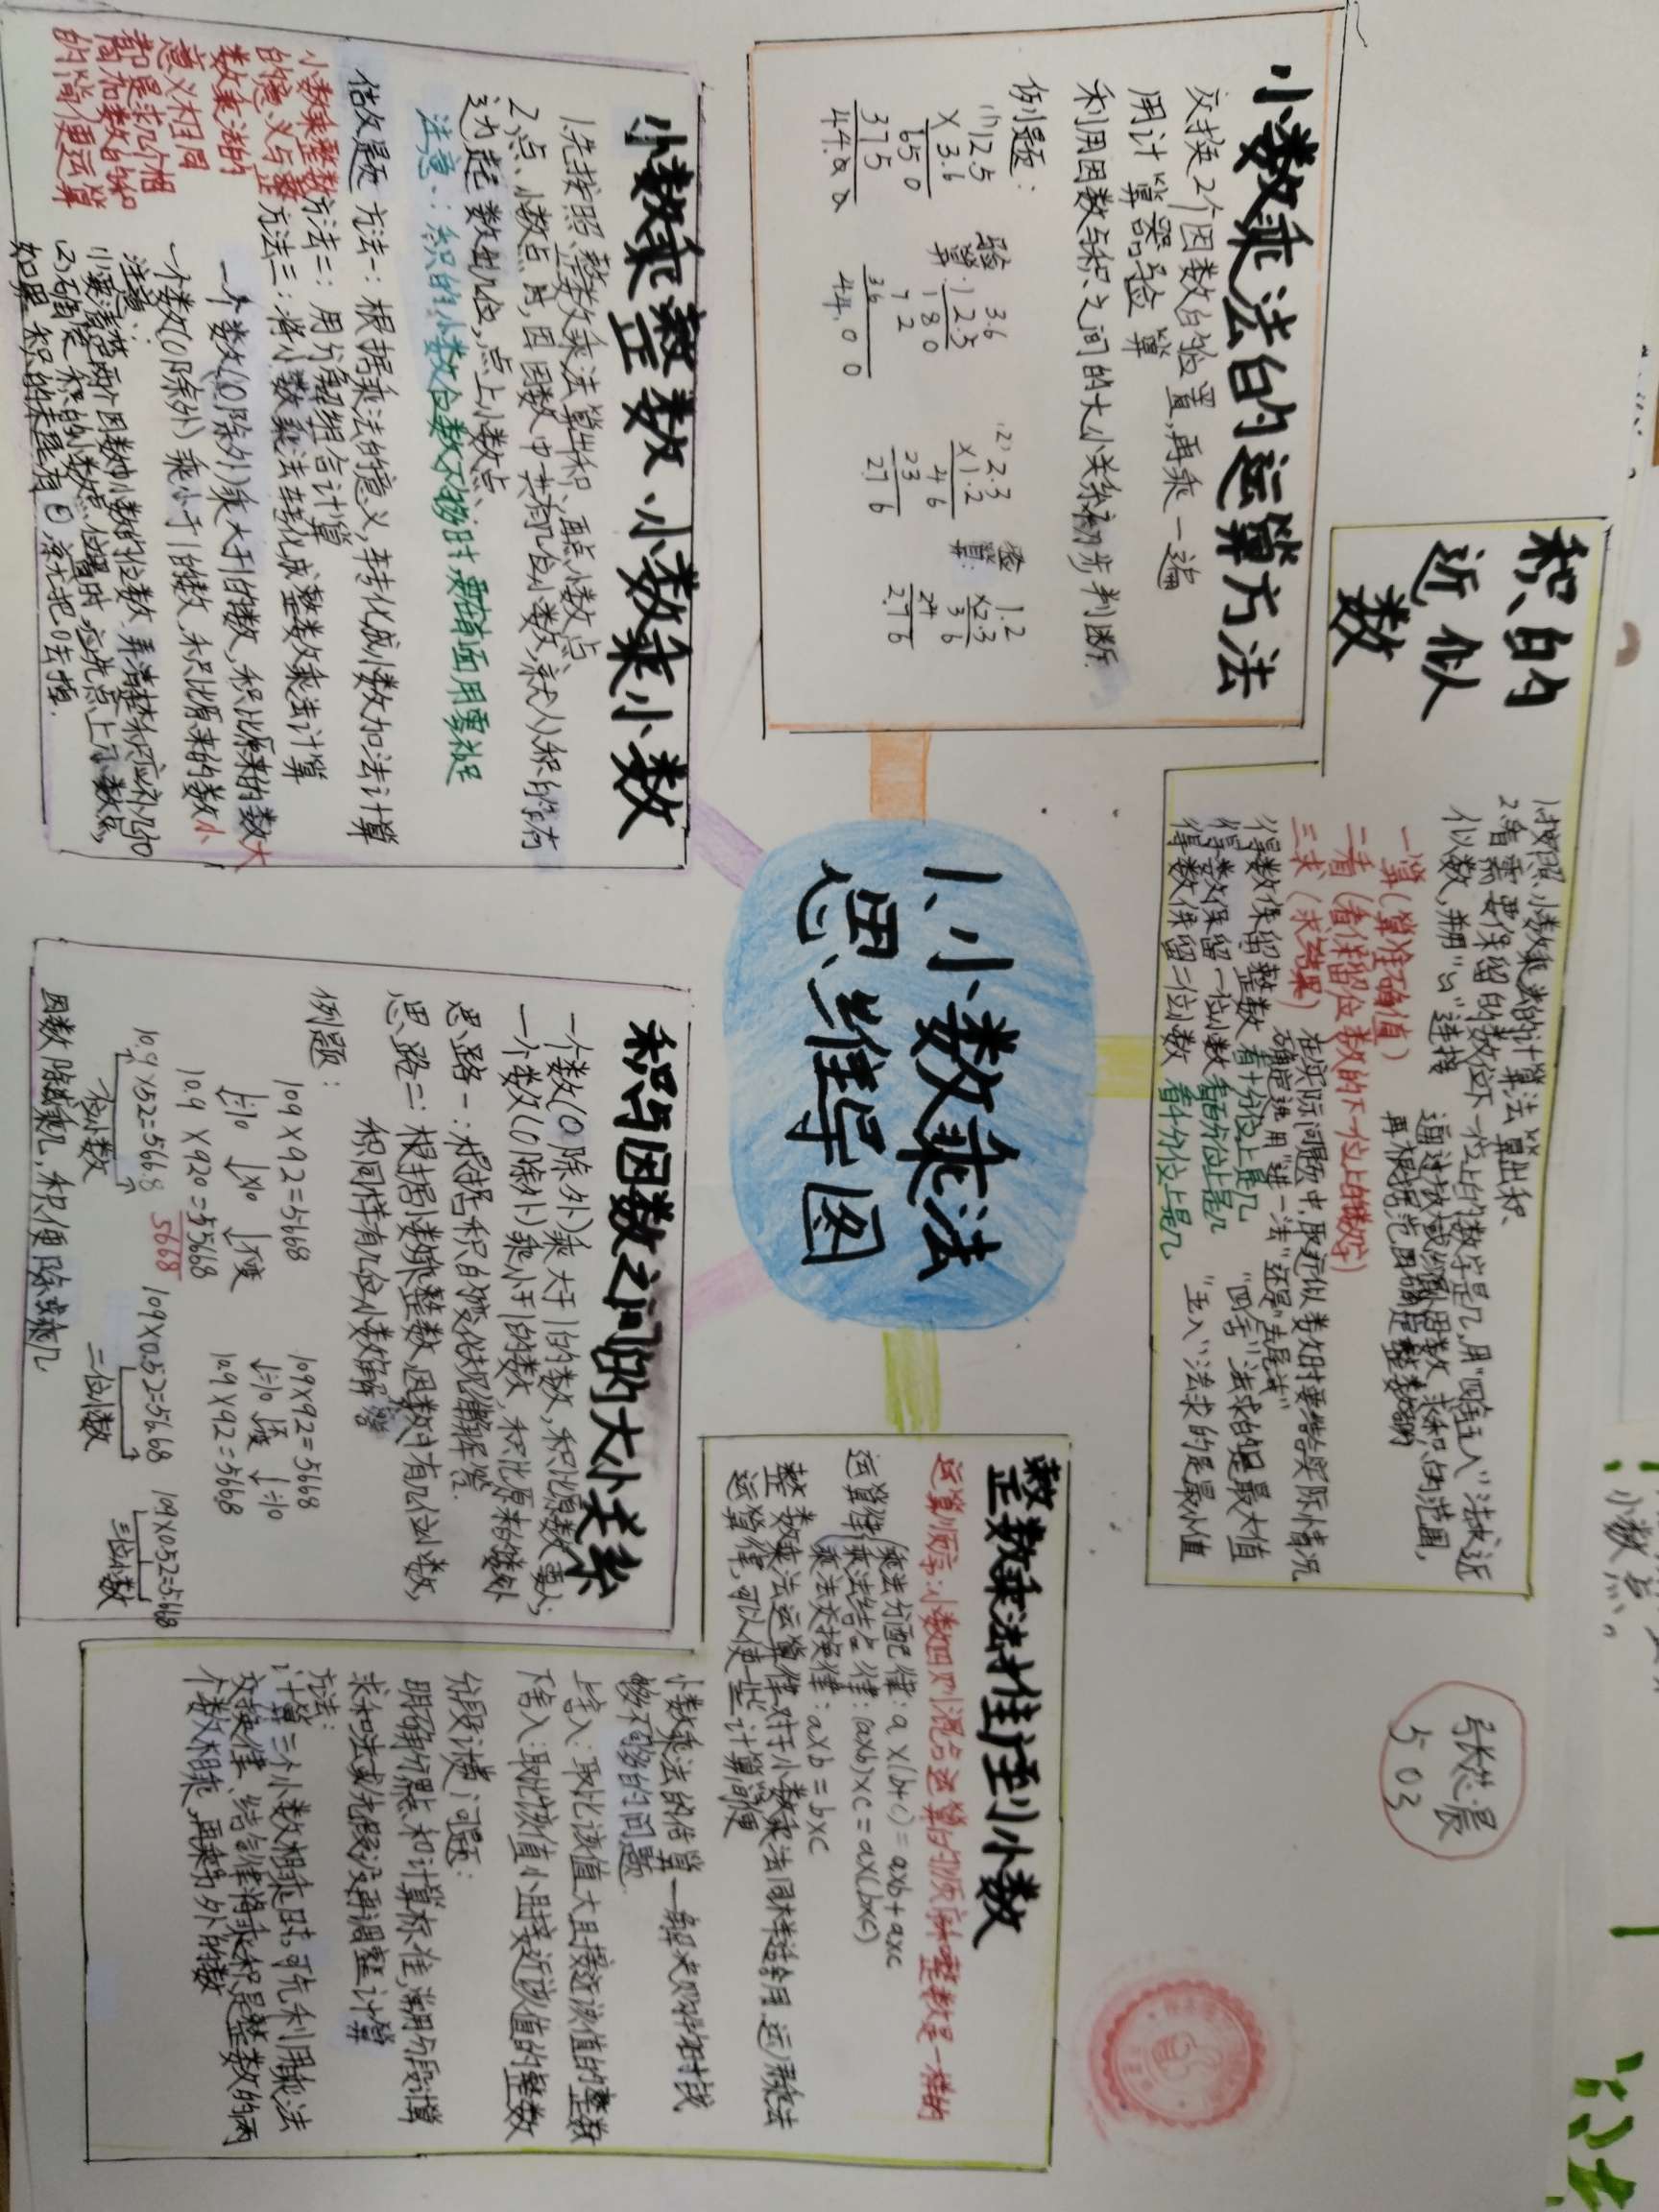 1、小数乘法
思维导图
小数乘法的运算方法
交换2个因数的位置,再乘一遍
用计算器验算
利用因数与积之间的大小关系初步判断.
例题:
(1) 12.5
× 3.6
65 0
375
44.00
验算: 3.6
12.5
180
72
36
44.00
(2) 2.3
×1.2
46
23
2.76
验算: 1.2
×2.3
36
24
2.76
积的
近似
数
1.按照小数乘数的计算法算出积、
2.看需要保留的数位下一位上的数字是几,用"四舍五入"法求近
似数,并用"≈"连接
一算(算准确值)
二看(看保留位数的下一位上的数字)
三求(求结果)
得数保留整数 看十分位上是几
得数保留一位小数 看百分位上是几
得数保留二位小数 看千分位上是几
再根据范围确定整数的
在实际问题中,取近似数时要结合实际情况
确定选用"进一法"还是"去尾法"
"四舍"法求的是最大值
"五入"法求的是最小值
小数乘整数、小数乘小数
1.先按照整数乘法算出积、再点小数点、
2、点、小数点时,因因数中共有几位小数,就从积的右
边起数出几位,点上小数点、
注意:积的小数位数不够时要在前面用零补足
估故是题 方法一:根据乘法的意义,转化成小数加法计算
方法二:用分解组合计算
方法三:将小数乘法转化成整数乘法计算
小数乘整数
的意义与整
数乘法的
意义相同
都是求几个相
同加数的和
的简便运算
一个数(0除外)乘大于1的数,积比原来的数大
一个数(0除外)乘小于1的数,积比原来的数小
注意:
(2)确定积的小数点位置时,应先点上小数点,
如果积的末尾有0,济把0去掉.
积与因数之间的大小关系
一个数(0除外)乘大于1的数,积比原数要大;
一个数(0除外)乘小于1的数,积比原来的数小
思路一:根据积的变化规律解答.
思路二:根据小数乘整数,因数中有几位小数,
积同样有几位小数解答
例题:
109×92=5668
↓÷10 ↓×10 ↓不变
10.9×920=5668
5668
109×92=5668
↓÷10 ↓不变 ↓÷10
10.9×92=5668
10.9×52=566.8
一位小数
109×0.52=56.68
二位小数
19×0.52=5.668
三位小数
因数除或乘几,积便除或乘几
整数乘法推广到小数
运算顺序:小数四则混合运算的顺序跟整数是一样的
运算律 乘法分配律:a×(b+c)=a×b+a×c
乘法结合律:(a×b)×c=a×(b×c)
乘法交换律:a×b=b×c
整数乘法运算律对于小数乘法同样适用.运用乘法
运算律,可以使一些计算简便
小数乘法的估算一般来
够不够的问题.
上舍入:取比该值大且接近该值的整数
下舍入:取比该值小且接近该值的整数
分段计费问题:
明确分界点和计算标准,常用分段计算
求和法或先假设再调整计算
方法:
计算三个小数相乘时,可先利用乘法
交换律、结合律将乘积是整数的两
个数相乘,再乘另外的数
张悠晨
503
小数点。